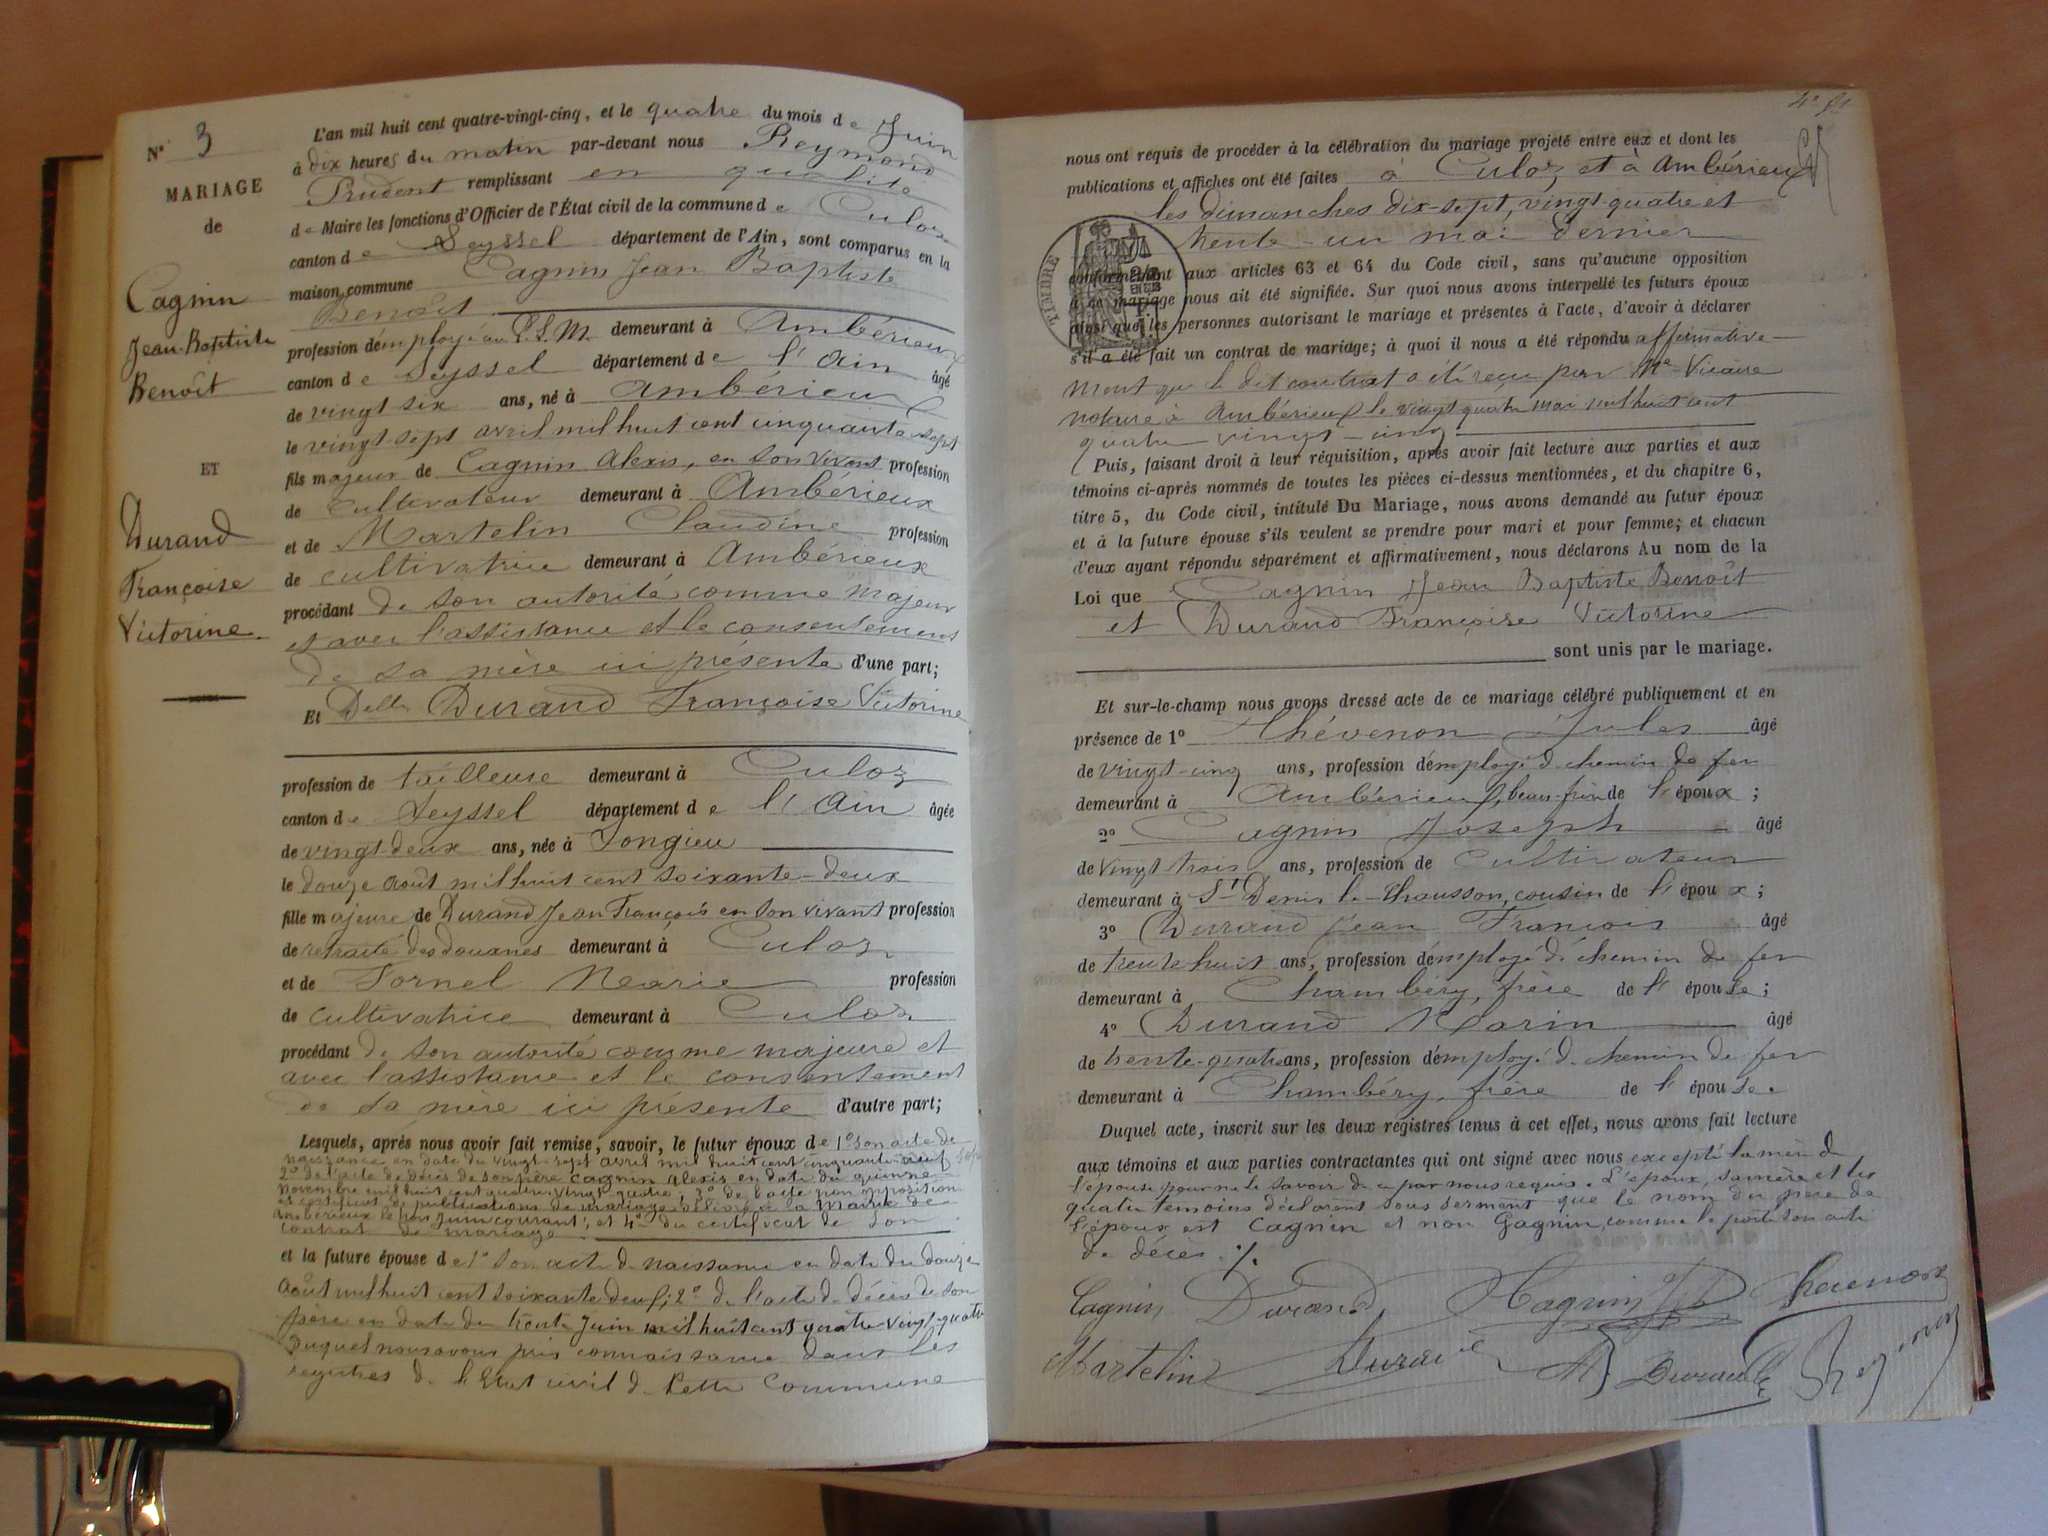 N° 3
MARIAGE
de
Cagnin
Jean-Baptiste
Benoît
ET
Durand
Françoise
Victorine
L'an mil huit cent quatre-vingt-cinq, et le quatre du mois de Juin
à dix heures du matin par-devant nous Reymond
Prudent remplissant en qualité
de Maire les fonctions d'Officier de l'État civil de la commune de Culoz
canton de Seyssel département de l'Ain, sont comparus en la
maison commune Cagnin Jean Baptiste
Benoît
profession d'employé au P.L.M. demeurant à Ambérieux
canton de Seyssel département de l'Ain âgé
de vingt six ans, né à Ambérieux
le vingt sept avril mil huit cent cinquante sept
fils majeur de Cagnin Alexis, en son vivant profession
de cultivateur demeurant à Ambérieux
et de Martelin Claudine profession
de cultivatrice demeurant à Ambérieux
procédant de son autorité comme majeur
et avec l'assistance et le consentement
de sa mère ici présente d'une part;
Et Delle Durand Françoise Victorine
profession de tailleuse demeurant à Culoz
canton de Seyssel département de l'Ain âgée
de vingt-deux ans, née à Jongieu
le douze août mil huit cent soixante-deux
fille majeure de Durand Jean François en son vivant profession
de retraité des douanes demeurant à Culoz
et de Fornel Marie profession
de cultivatrice demeurant à Culoz
procédant de son autorité comme majeure et
avec l'assistance et le consentement
de sa mère ici présente d'autre part;
Lesquels, après nous avoir fait remise, savoir, le futur époux de 1° son acte de
naissance en date du vingt-sept avril mil huit cent cinquante-neuf
2° de l'acte de décès de son père Cagnin Alexis en date du quinze
novembre mil huit cent quatre vingt quatre, 3° de l'acte non opposition
et certificat de publications de mariage délivré à la Mairie de
Ambérieux le juin courant, et 4° du certificat de son
contrat de mariage.
et la future épouse de 1° son acte de naissance en date du douze
août mil huit cent soixante deux; 2° de l'acte de décès de son
père en date du trente Juin mil huit cent quatre vingt-quatre
duquel nous avons pris connaissance dans les
registres de l'Etat civil de cette commune
nous ont requis de procéder à la célébration du mariage projeté entre eux et dont les
publications et affiches ont été faites à Culoz, et à Ambérieux
les dimanches dix-sept, vingt-quatre et
trente-un mai dernier
conformément aux articles 63 et 64 du Code civil, sans qu'aucune opposition
à ce mariage nous ait été signifiée. Sur quoi nous avons interpellé les futurs époux
ainsi que les personnes autorisant le mariage et présentes à l'acte, d'avoir à déclarer
s'il a été fait un contrat de mariage; à quoi il nous a été répondu affirmative-
ment que le dit contrat a été reçu par Me Vicaire
notaire à Ambérieux le vingt quatre mai mil huit cent
quatre-vingt-cinq
Puis, faisant droit à leur réquisition, après avoir fait lecture aux parties et aux
témoins ci-après nommés de toutes les pièces ci-dessus mentionnées, et du chapitre 6,
titre 5, du Code civil, intitulé Du Mariage, nous avons demandé au futur époux
et à la future épouse s'ils veulent se prendre pour mari et pour femme; et chacun
d'eux ayant répondu séparément et affirmativement, nous déclarons Au nom de la
Loi que Cagnin Jean Baptiste Benoît
et Durand Françoise Victorine
sont unis par le mariage.
Et sur-le-champ nous avons dressé acte de ce mariage célébré publiquement et en
présence de 1° Thévenon Jules âgé
de vingt-cinq ans, profession d'employé de chemin de fer
demeurant à Ambérieux, beau-frère de l'époux;
2° Cagnin Joseph âgé
de vingt trois ans, profession de cultivateur
demeurant à St Denis le-Chausson, cousin de l'époux;
3° Durand Jean François âgé
de trente huit ans, profession d'employé de chemin de fer
demeurant à Chambéry, frère de l'épouse;
4° Durand Marin âgé
de trente-quatre ans, profession d'employé de chemin de fer
demeurant à Chambéry, frère de l'épouse.
Duquel acte, inscrit sur les deux registres tenus à cet effet, nous avons fait lecture
aux témoins et aux parties contractantes qui ont signé avec nous excepté la mère de
l'épouse pour ne le savoir de ce par nous requis. L'époux, sa mère et les
quatre témoins déclarent sous serment que le nom du père de
l'époux est Cagnin et non Gagnin, comme le porte son acte
de décès ./.
Cagnin Durand Cagnin Jph Thevenon
Martelin Durand M Durand Reymond
TIMBRE